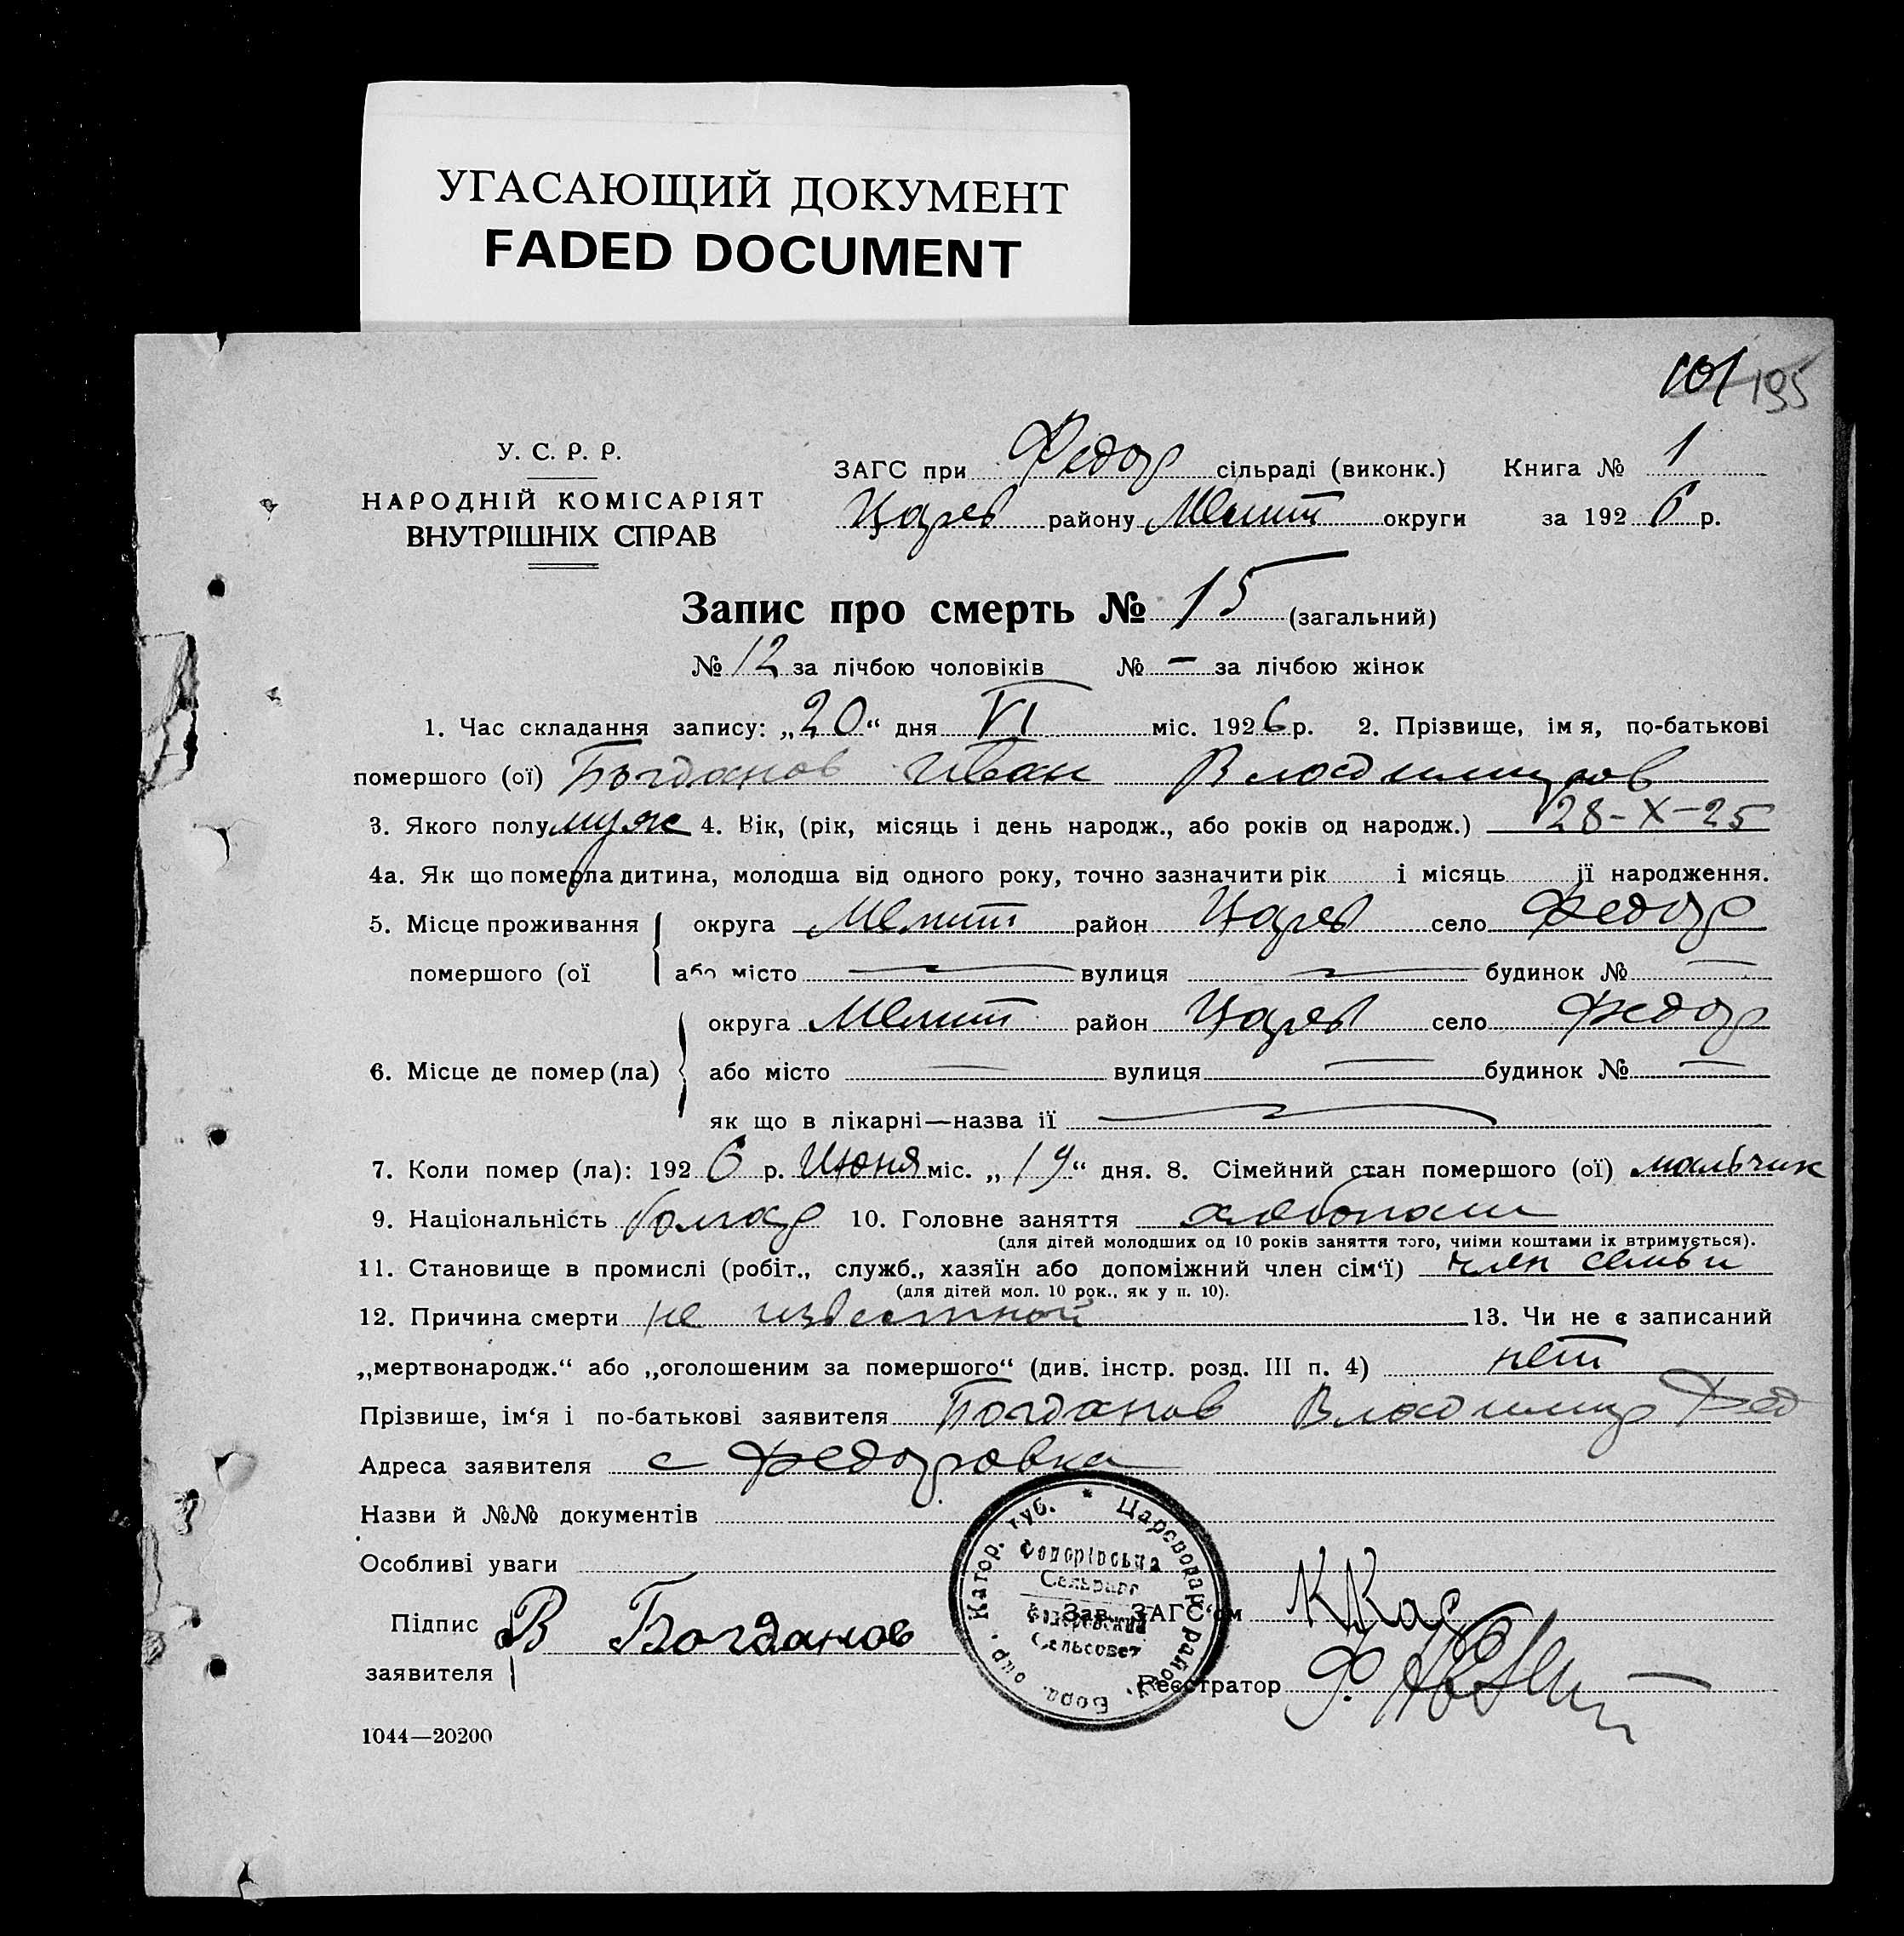 УГАСАЮЩИЙ ДОКУМЕНТ
FADED DOCUMENT
101 195
У. С. Р. Р.
НАРОДНІЙ КОМІСАРІЯТ
ВНУТРІШНІХ СПРАВ
ЗАГС при Федор сільраді (виконк.) Книга № 1
Царев району Мелит округи за 1926 р.
Запис про смерть № 15 (загальний)
№ 12 за лічбою чоловіків № — за лічбою жінок
1. Час складання запису: „20“ дня VI міс. 1926 р. 2. Прізвище, імя, по-батькові
помершого (ої) Богданов Иван Владимиров
3. Якого полу муж 4. Вік, (рік, місяць і день народж., або років од народж.) 28-X-25
4а. Як що померла дитина, молодша від одного року, точно зазначити рік і місяць її народження.
5. Місце проживання округа Мелит район Царев село Федор
помершого (ої або місто — вулиця — будинок № —
округа Мелит район Царев село Федор
6. Місце де помер (ла) або місто — вулиця — будинок № —
як що в лікарні—назва її —
7. Коли помер (ла): 1926 р. Июня міс. „19“ дня. 8. Сімейний стан помершого (ої) мальчик
9. Національність болгар 10. Головне заняття хлебопаш
(для дітей молодших од 10 років заняття того, чиїми коштами їх втримується).
11. Становище в промислі (робіт., служб., хазяїн або допоміжний член сім‘ї) член семьи
(для дітей мол. 10 рок., як у п. 10).
12. Причина смерти не известной 13. Чи не є записаний
„мертвонародж.“ або „оголошеним за помершого“ (див. інстр. розд. III п. 4) нет
Прізвище, ім‘я і по-батькові заявителя Богданов Владимир Фед
Адреса заявителя с Федоровка
Назви й №№ документів
Особливі уваги
Катер. губ. * Цареводар. район. Берд. окр.
Федорівська
Сельрада
Федоровский
Сельсовет
Підпис В Богданов Зав. ЗАГС‘ом
заявителя Реєстратор
1044—20200